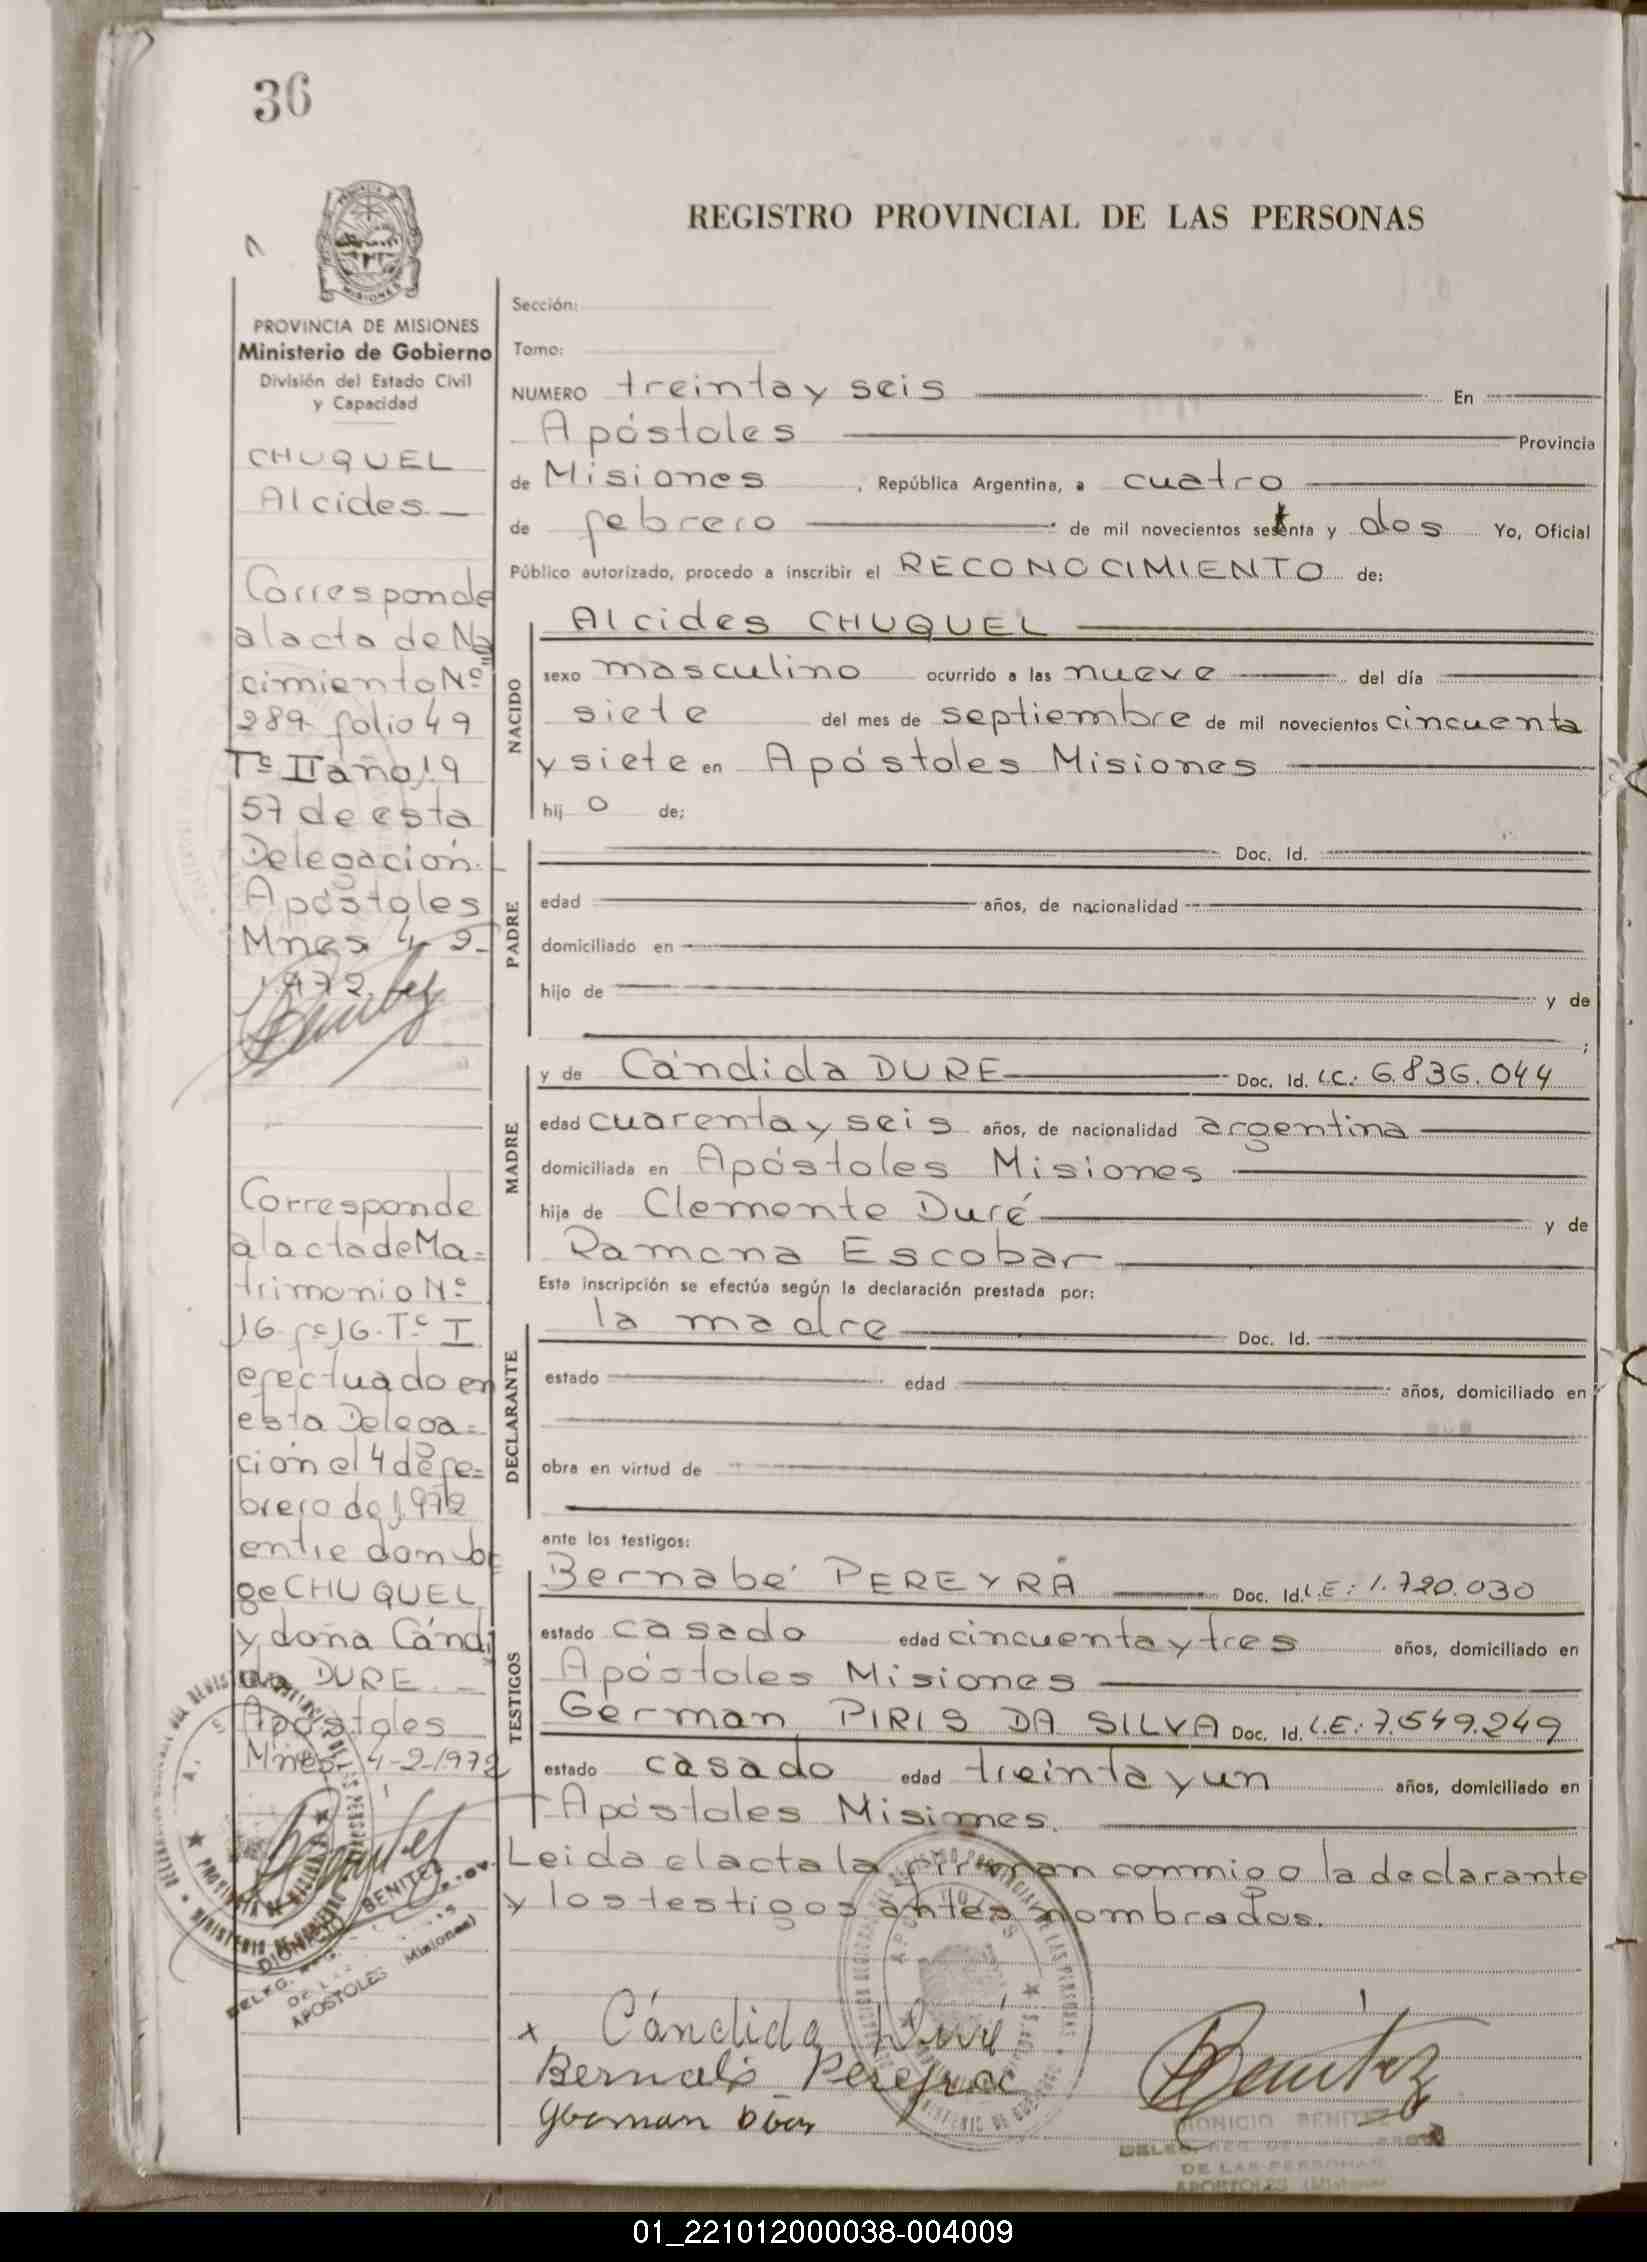 36
REGISTRO PROVINCIAL DE LAS PERSONAS
PROVINCIA DE MISIONES
Ministerio de Gobierno
División del Estado Civil
y Capacidad
CHUQUEL
Alcides.—
Corresponde
al acta de Na
cimiento Nº
289 folio 49
Tº II año 19
57 de esta
Delegación.
Apóstoles
Mnes 4-2-
1972.
Benitez
Corresponde
al acta de Ma=
trimonio Nº
16 fº 16. Tº I
efectuado en
esta Delega=
ción el 4 de fe=
brero de 1.972
entre don
ge CHUQUEL
y doña Cándi
da DURE.—
Apóstoles
Mnes. 4-2-1972
Benitez
DIONICIO BENITEZ
APOSTOLES (Misiones)
Sección:
Tomo:
NUMERO treinta y seis En
Apóstoles Provincia
de Misiones, República Argentina, a cuatro
de febrero de mil novecientos setenta y dos Yo, Oficial
Público autorizado, procedo a inscribir el RECONOCIMIENTO de:
NACIDO
Alcides CHUQUEL
sexo masculino ocurrido a las nueve del día
siete del mes de septiembre de mil novecientos cincuenta
y siete en Apóstoles Misiones
hij o de;
PADRE
Doc. Id.
edad años, de nacionalidad
domiciliado en
hijo de y de
;
MADRE
y de Cándida DURE Doc. Id. L.C.: 6.836.044
edad cuarenta y seis años, de nacionalidad argentina
domiciliada en Apóstoles Misiones
hija de Clemente Duré y de
Ramona Escobar
Esta inscripción se efectúa según la declaración prestada por:
DECLARANTE
la madre Doc. Id.
estado edad años, domiciliado en
obra en virtud de
ante los testigos:
TESTIGOS
Bernabé PEREYRA Doc. Id. L.E.: 1.720.030
estado casado edad cincuenta y tres años, domiciliado en
Apóstoles Misiones
German PIRIS DA SILVA Doc. Id. L.E.: 7.549.249
estado casado edad treinta y un años, domiciliado en
Apóstoles Misiones.
Leida el acta la firman conmigo la declarante
y los testigos antes nombrados.
x Cándida Duré
Bernabé Pereyra
Benitez
DIONICIO BENITEZ
DE LAS PERSONAS
APOSTOLES (Misiones)
01_221012000038-004009